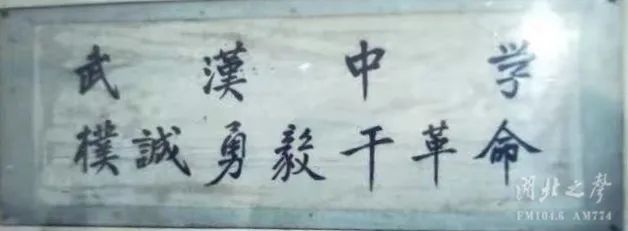 武漢中学
樸誠勇毅干革命
湖北之聲
FM104.6 AM774